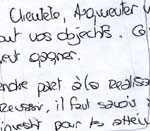 Clientèle, Augmenter v
out vos objectifs. G
eut gagner.
endre part à la réalisa
Réussir, il faut savoir s
investir pour les attein